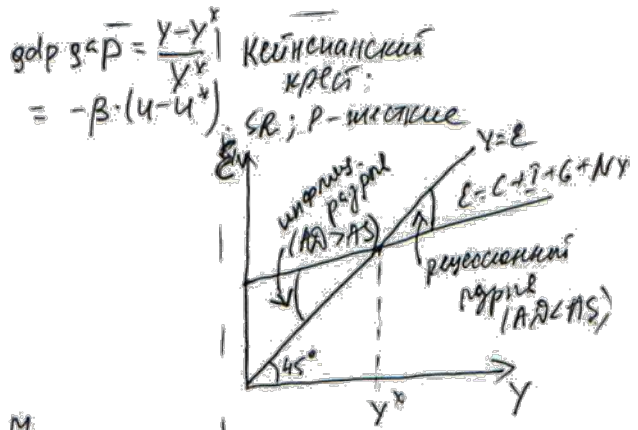 gdp gap = Y-Y* / Y*
= -β·(u-u*)
Кейнсианский
крест.
SR; P-жесткие
E
Y=E
E=C+I+G+NX
инфляц.
разрыв
(AD>AS)
рецессионный
разрыв
(AD<AS)
45°
Y*
Y
M